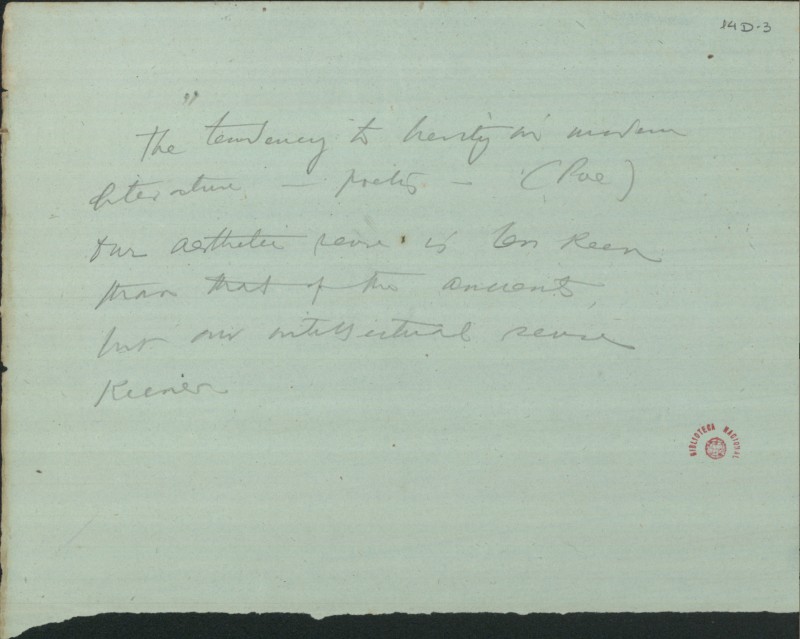 14D-3
"
The tendency to brevity in modern
literature — poetry — (Poe)
Our aesthetic sense is less keen
than that of the ancients,
but our intellectual sense
keener
BIBLIOTECA NACIONAL